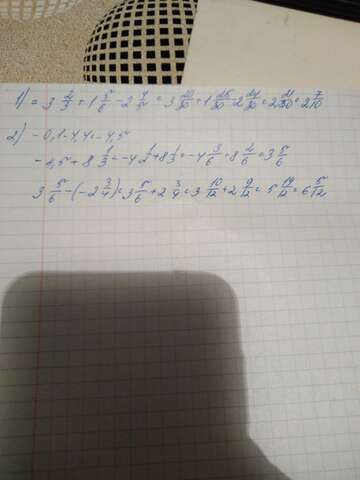 1) = 3 2/3 + 1 5/6 - 2 4/5 = 3 20/30 + 1 25/30 - 2 24/30 = 2 21/30 = 2 7/10
2) - 0,1 - 4,4 = - 4,5
- 4,5 + 8 1/3 = - 4 1/2 + 8 1/3 = - 4 3/6 + 8 2/6 = 3 5/6
3 5/6 - (- 2 3/4) = 3 5/6 + 2 3/4 = 3 10/12 + 2 9/12 = 5 19/12 = 6 5/12